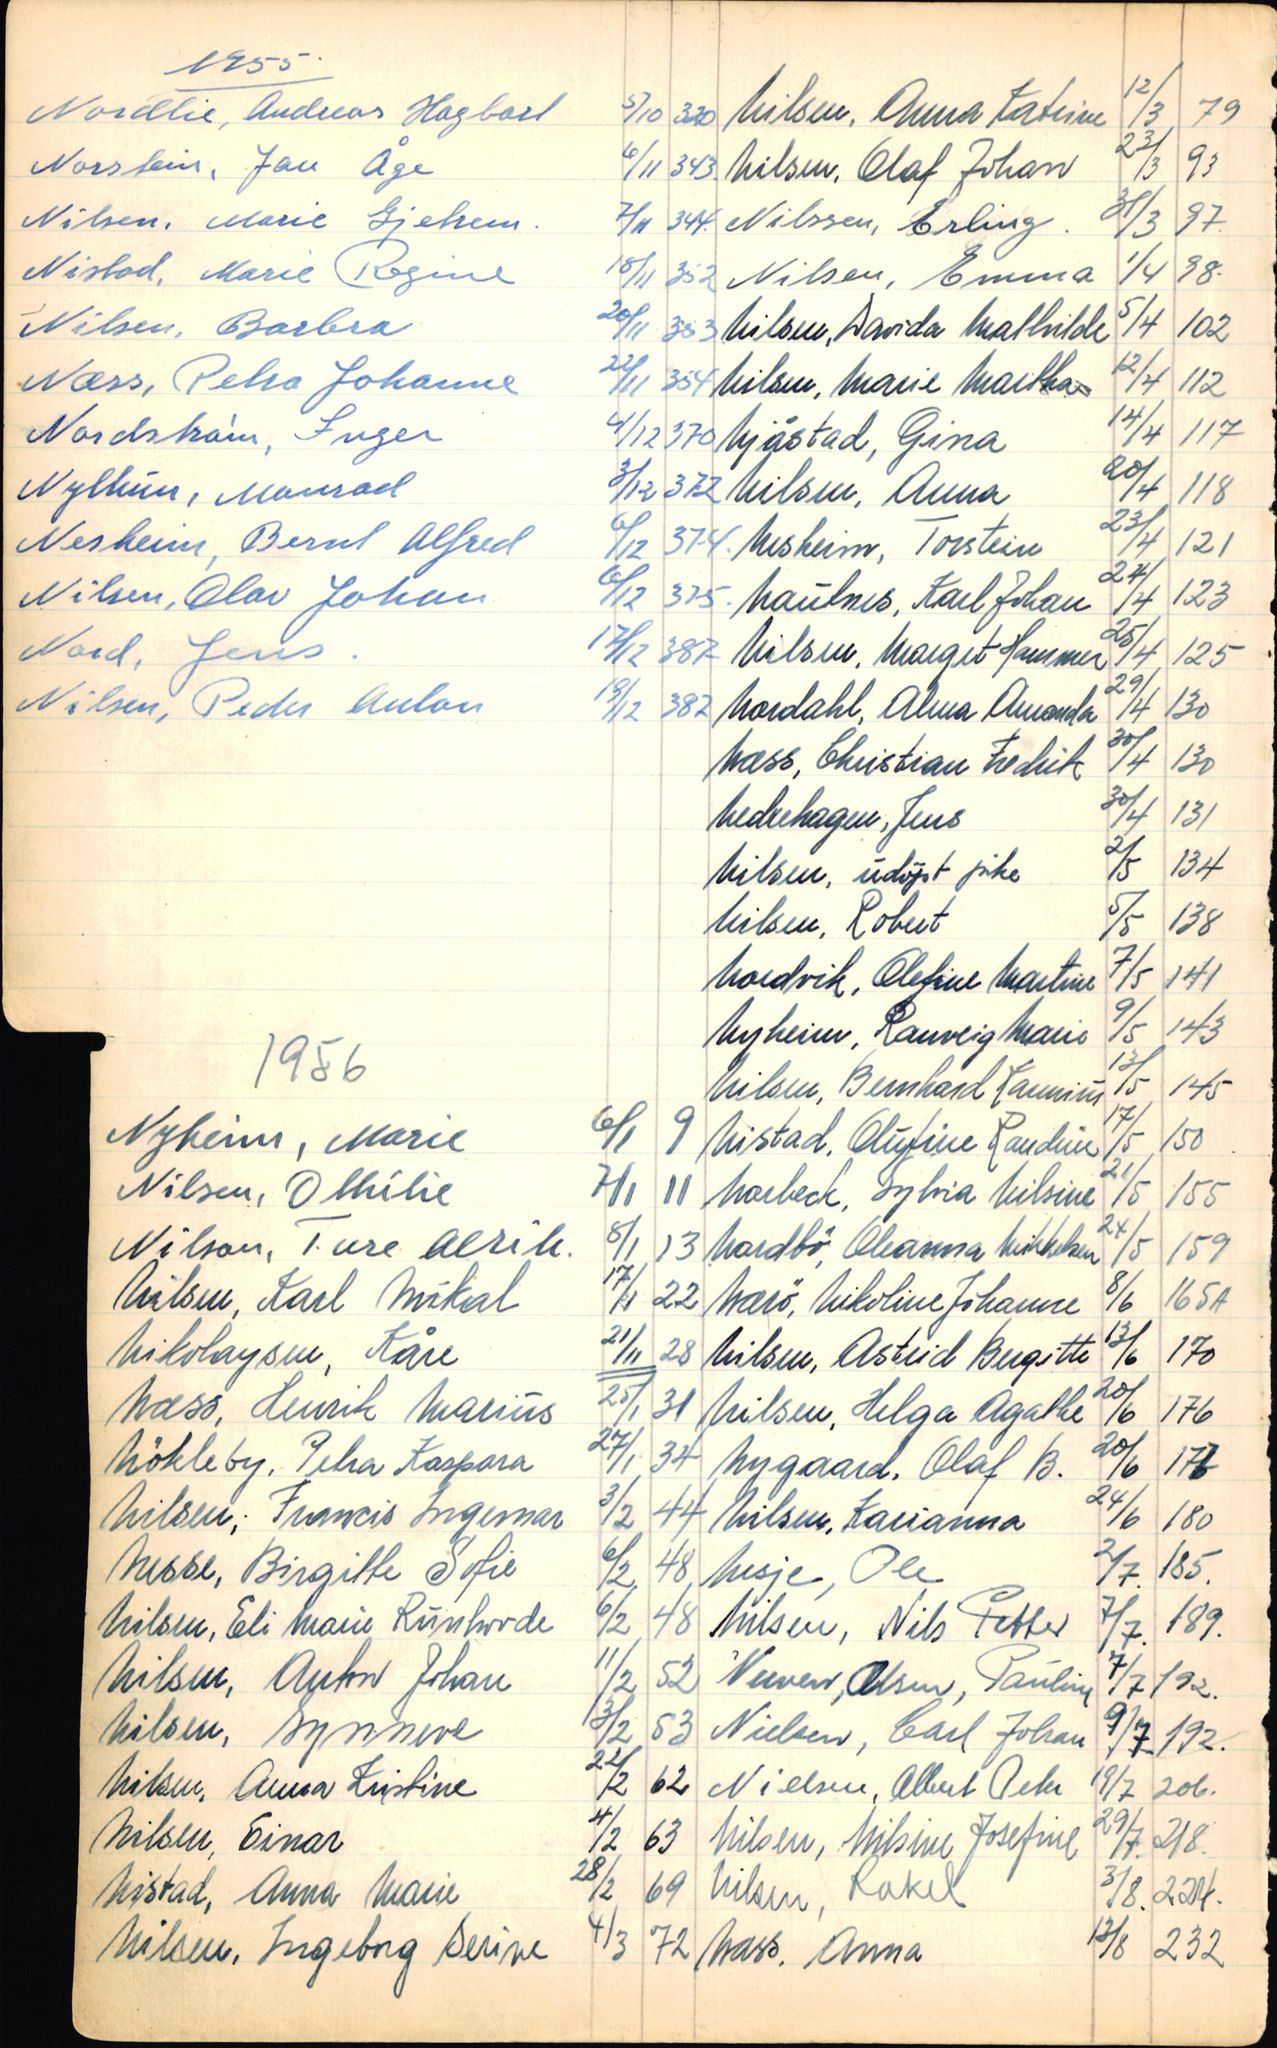 1955.
Nordlie, Andreas Hagbart 5/10 330
Norstein, Jan Åge 6/11 343.
Nilsen, Marie Gjelsem. 7/11 344.
Nistad, Marie Regine 18/11 352
Nilsen, Barbra 20/11 353
Næss, Petra Johanne 22/11 354
Nordstrøm, Inger 4/12 370
Nylhün, Monrad 3/12 372
Nesheim, Bernt Alfred 6/12 374.
Nilsen, Olav Johan 6/12 375.
Nord, Jens. 17/12 387
Nilsen, Peder Anton 19/12 382
1956
Nyheim, Marie 6/1 9
Nilsen, Othilie 7/1 11
Nilson, Ture Alrik. 8/1 13
Nilsen, Karl Mikal 17/1 22
Nikolaysen, Kåre 21/11 28
Næss, Henrik Marius 25/1 31
Nökleby, Petra Kaspara 27/1 34
Nilsen, Francis Ingemar 3/2 44
Nesse, Birgitte Sofie 6/2 48
Nilsen, Eli Marie 6/2 48
Nilsen, Anton Johan 11/2 52
Nilsen, Synneve 13/2 53
Nilsen, Anna Kristine 22/2 62
Nilsen, Einar 4/2 63
Nistad, Anna Marie 28/2 69
Nilsen, Ingeborg Serine 4/3 72
Nilsen, Anna Katrine 12/3 79
Nilsen, Olaf Johan 23/3 93
Nilssen, Erling. 31/3 97
Nilsen, Emma 1/4 98.
Nilsen, Davida Mathilde 5/4 102
Nilsen, Marie Martha 12/4 112
Njåstad, Gina 14/4 117
Nilsen, Anna 20/4 118
Nesheim, Torstein 23/4 121
Nautnes, Karl Johan 24/4 123
Nilsen, Marget Hammer 25/4 125
Nordahl, Alma Amanda 29/4 130
Næss, Christian Fredrik 30/4 130
Nedrehagen, Jens 30/4 131
Nilsen, udöpt pike 2/5 134
Nilsen, Robert 5/5 138
Nordvik, Olefine Martine 7/5 141
Nyheim, Ranveig Marie 9/5 143
Nilsen, Bernhard 13/5 145
Nistad, Olufine Randine 17/5 150
Norbeck, Sylvia Nilsine 21/5 155
Nordbö, Oleanna Mikkelsen 24/5 159
Nærö, Nikoline Johanne 8/6 165A
Nilsen, Astrid Bergitte 13/6 170
Nilsen, Helga Agathe 20/6 176
Nygaard, Olaf B. 20/6 177
Nilsen, Karianna 24/6 180
Nesje, Ole 2/7. 185.
Nilsen, Nils Petter 7/7. 189.
Olsen, Pauline 7/7 192.
Nielsen, Carl Johan 9/7 192.
Nielsen, Albert Peter 19/7 206.
Nilsen, Nilsine Josefine 29/7. 218.
Nilsen, Rakel 3/8. 224.
Næss, Anna 13/8 232